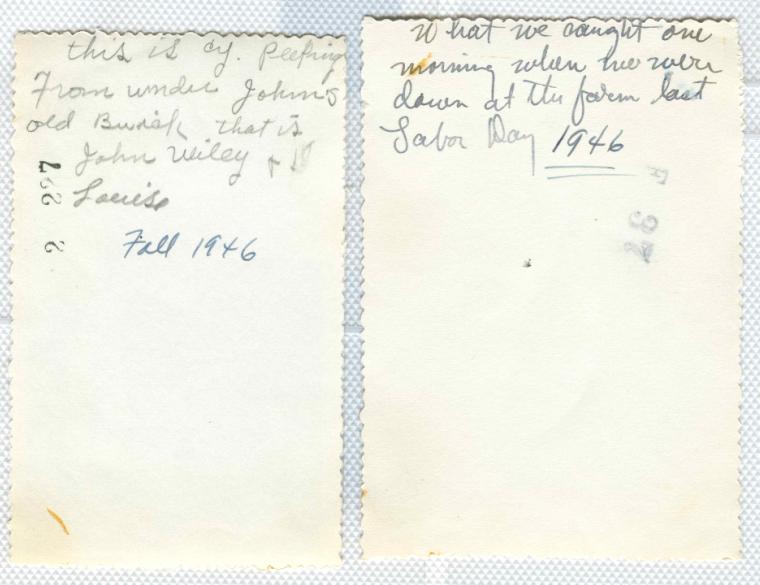 this is cy. Peeking
From under Johns
old Buick that is
John Wiley +
Louise
Fall 1946
2 227
What we caught one
morning when we were
down at the farm last
Labor Day 1946